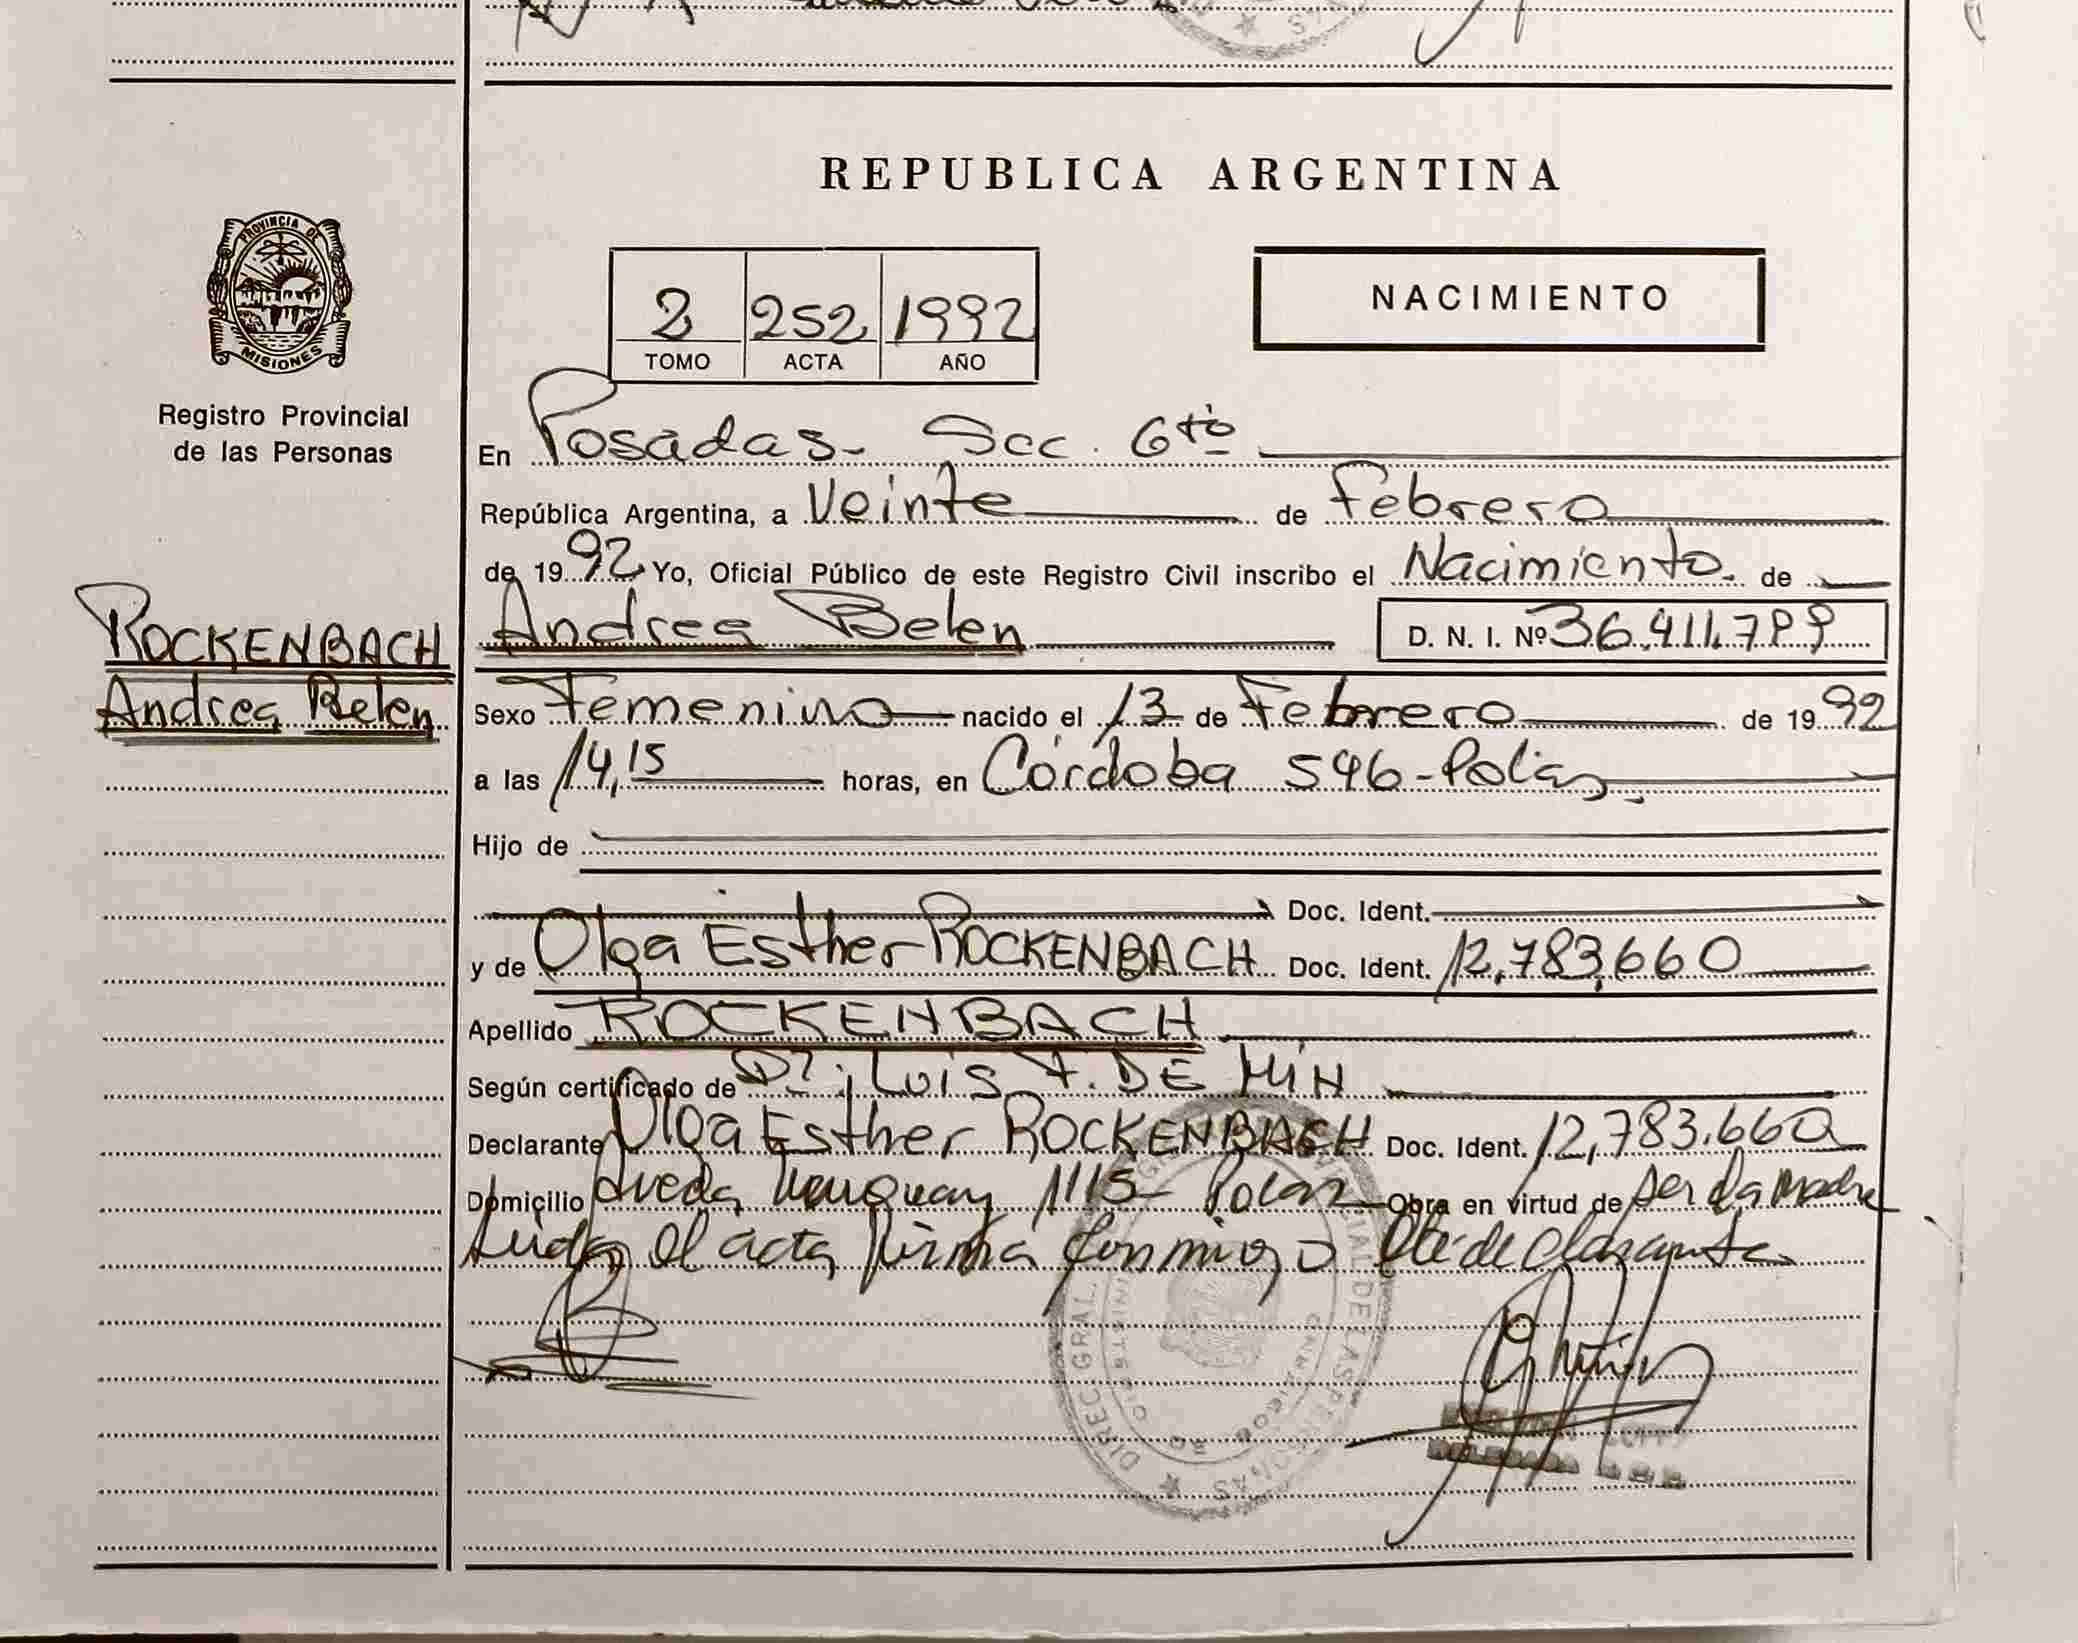 REPUBLICA ARGENTINA
PROVINCIA DE
MISIONES
Registro Provincial
de las Personas
2 252 1992
TOMO ACTA AÑO
NACIMIENTO
En Posadas - Secc. 6ta
República Argentina, a Veinte de Febrero
de 1992 Yo, Oficial Público de este Registro Civil inscribo el Nacimiento. de
ROCKENBACH
Andrea Belen
Andrea Belen D. N. I. Nº 36.911.789
Sexo Femenino nacido el 13 de Febrero de 1992
a las 14,15 horas, en Córdoba 546 -
Hijo de
Doc. Ident.
y de Olga Esther ROCKENBACH Doc. Ident. 12,783,660
Apellido ROCKENBACH
Según certificado de Dr. Luis F. DE MIN
Declarante Olga Esther ROCKENBACH Doc. Ident. 12,783.660
Domicilio Avda Uruguay 1115 - Obra en virtud de ser la Madre
Leida el acta firma conmigo declarante
DIREC. GRAL.